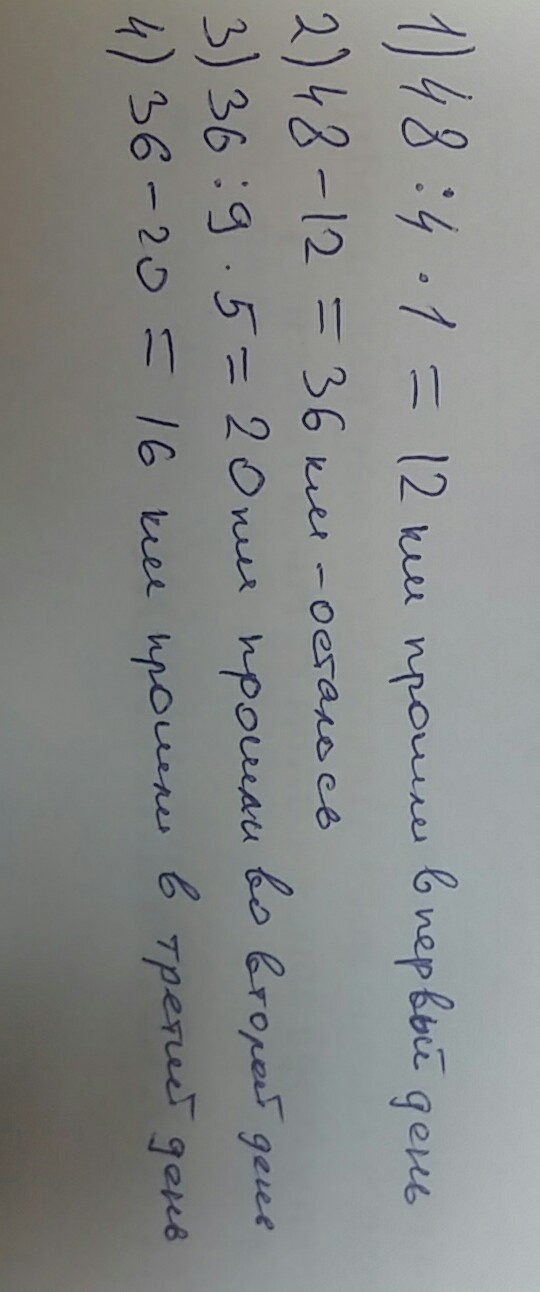 1) 48 : 4 · 1 = 12 км прошли в первый день
2) 48 - 12 = 36 км - осталось
3) 36 : 9 · 5 = 20 км прошли во второй день
4) 36 - 20 = 16 км прошли в третий день